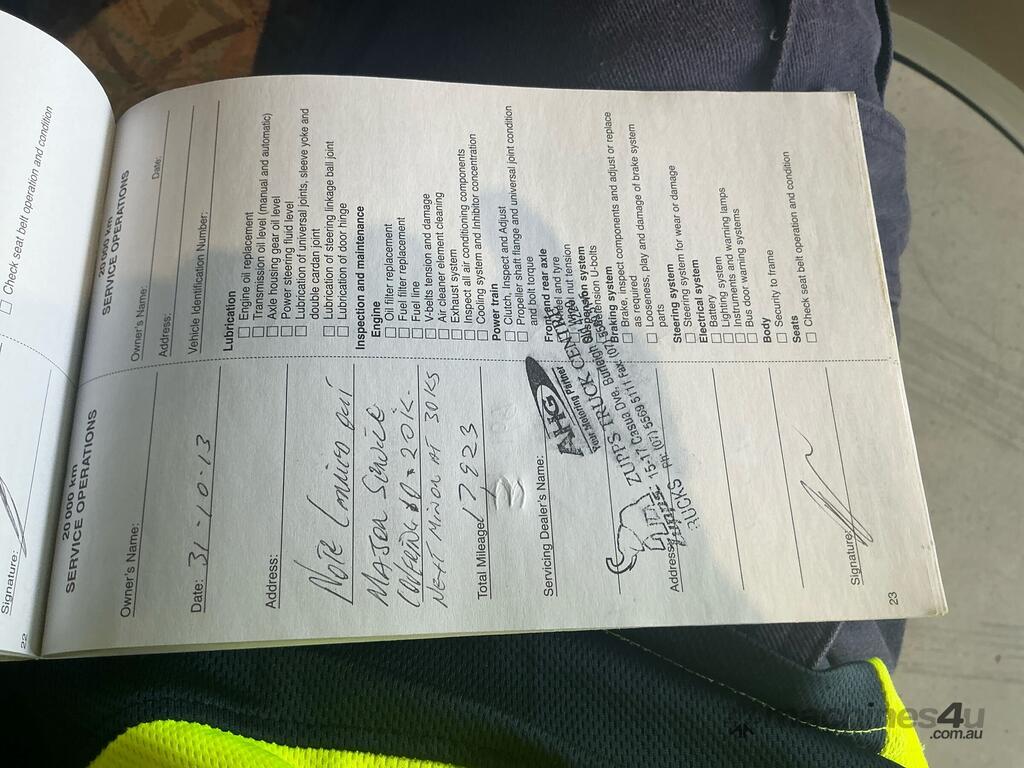 Check seat belt operation and condition
Signature:
22
20 000 km
SERVICE OPERATIONS
Owner's Name:
Date: 31-10-13
Address:
NOTE
MAJOR SERVICE
20K.
NEXT MINOR AT 30KS
Total Mileage 17,923
Servicing Dealer's Name:
AHG
Your Motoring Partner
ZUPPS TRUCK CENTRE
Address:
15-17 Casua Dve, Burleigh
Ph: (07) 5569 5111 Fax: (07)
Signature:
23
20 000 km
SERVICE OPERATIONS
Owner's Name:
Date:
Address:
Vehicle Identification Number:
Lubrication
Engine oil replacement
Transmission oil level (manual and automatic)
Axle housing gear oil level
Power steering fluid level
Lubrication of universal joints, sleeve yoke and
double cardan joint
Lubrication of steering linkage ball joint
Lubrication of door hinge
Inspection and maintenance
Engine
Oil filter replacement
Fuel filter replacement
Fuel line
V-belts tension and damage
Air cleaner element cleaning
Exhaust system
Inspect all air conditioning components
Cooling system and inhibitor concentration
Power train
Clutch, Inspect and Adjust
Propeller shaft flange and universal joint condition
and bolt torque
Front and rear axle
Wheel and tyre
Wheel nut tension
Suspension system
Suspension U-bolts
Braking system
Brake, inspect components and adjust or replace
as required
Looseness, play and damage of brake system
parts
Steering system
Steering system for wear or damage
Electrical system
Battery
Lighting system
Instruments and warning lamps
Bus door warning systems
Body
Security to frame
Seats
Check seat belt operation and condition
machines4u
.com.au